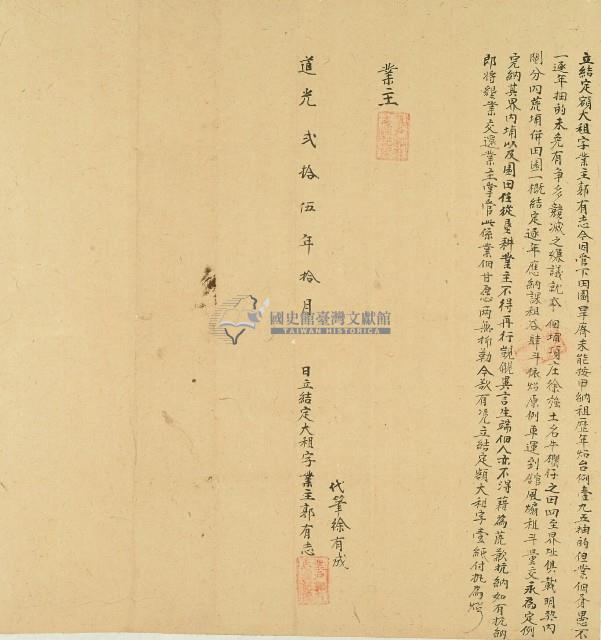 立結定額大租字業主郭有志今因管下田園旱磽未能按甲納租歷年照台例壹九五抽的但業佃矛愚不
一逐年抽的未免有争多競減之嫌議就本佃埔頂庄徐強土名牛欄仔之田四至界址俱載明契內
鬮分內荒埔併田園一概結定逐年應納課租谷肆斗依照原例車運到館風搧租斗量交永為定例
完納其界內埔以及園田任從墾耕業主不得再行覬覦異言生端佃人亦不得藉為荒歉抗納如有抗納
即將墾業交還業主掌管此係業佃甘愿两無抑勒今欲有凴立結定額大租字壹紙付執為照
業主
道光弍拾伍年拾月 日立結定大租字業主郭有志
代筆徐有成
國史館臺灣文獻館
TAIWAN HISTORICA